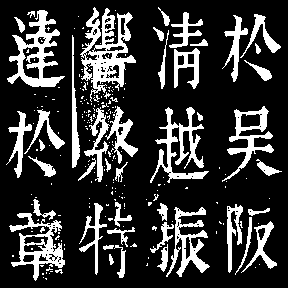 於吴阪
清越振
響終特
達於章